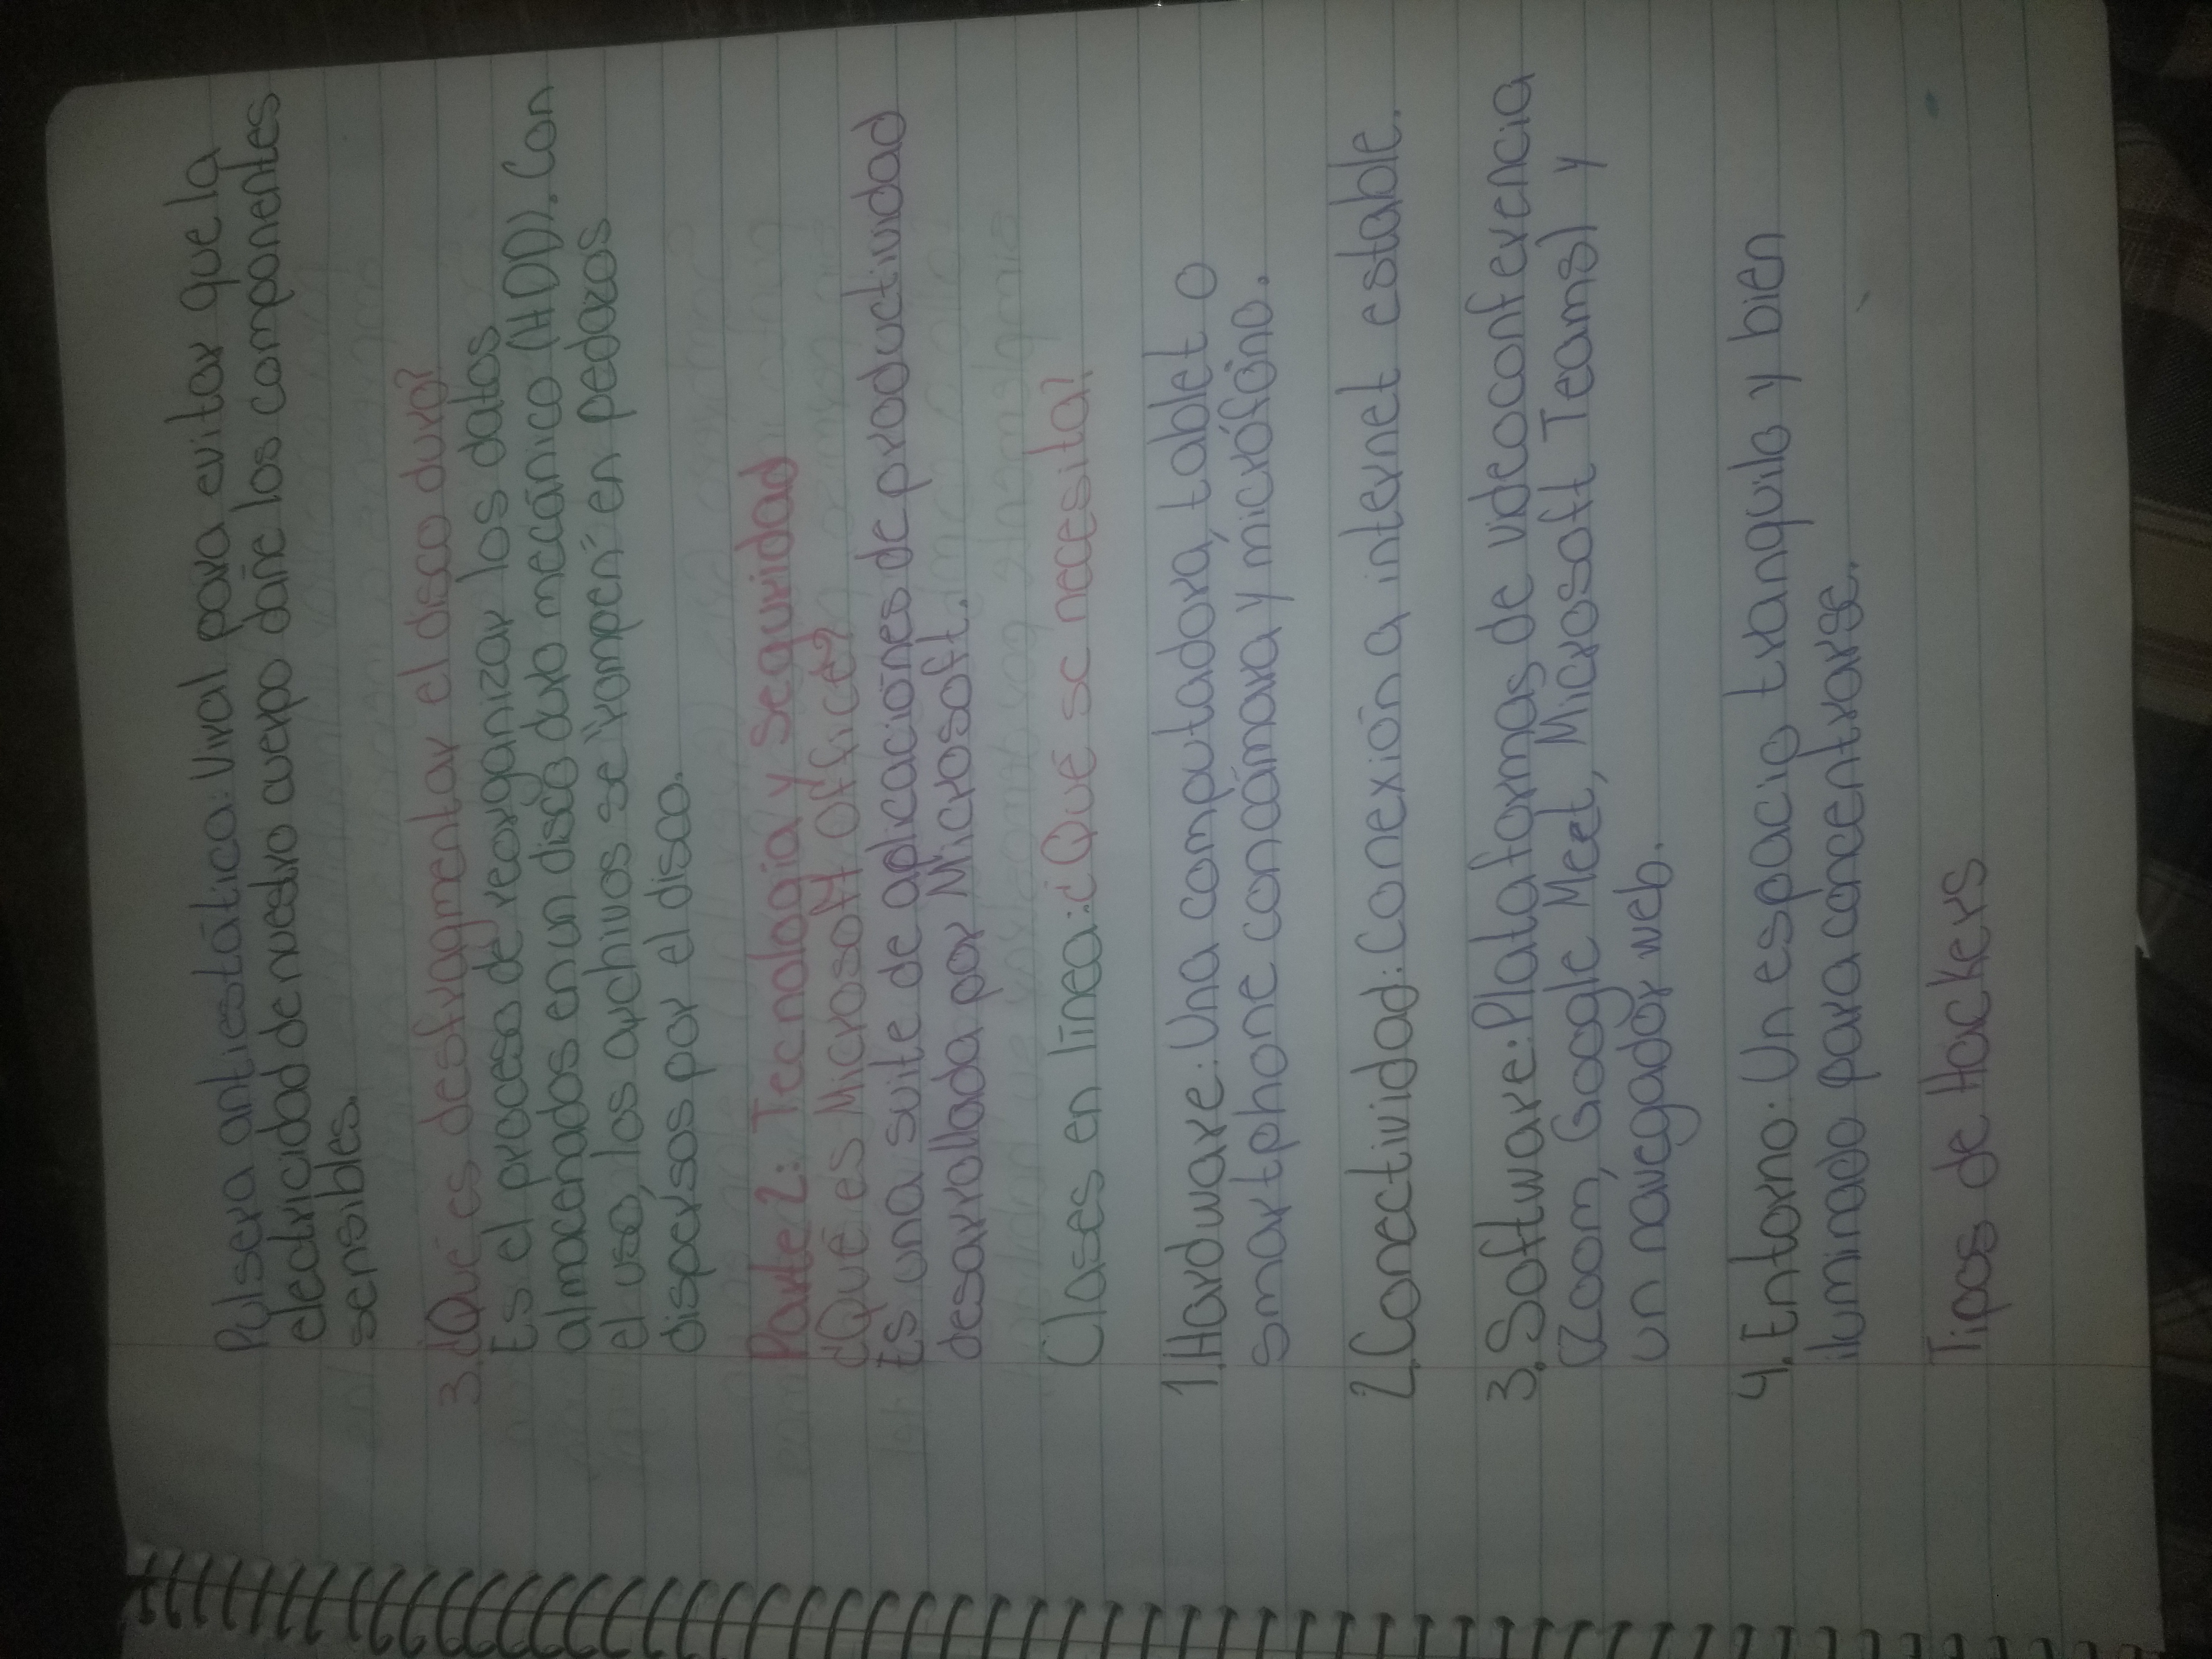 Pulsera antiestática: Viral para evitar que la
electricidad de nuestro cuerpo dañe los componentes
sensibles.
3. ¿Qué es desfragmentar el disco duro?
Es el proceso de reorganizar los datos
almacenados en un disco duro mecánico (HDD). Con
el uso, los archivos se "rompen" en pedazos
dispersos por el disco.
Parte 2: Tecnología y Seguridad
¿Qué es Microsoft Office?
Es una suite de aplicaciones de productividad
desarrollada por Microsoft.
Clases en línea: ¿Qué se necesita?
1. Hardware: Una computadora, tablet o
smartphone con cámara y micrófono.
2. Conectividad: Conexión a internet estable.
3. Software: Plataformas de videoconferencia
(Zoom, Google Meet, Microsoft Teams) y
un navegador web.
4. Entorno: Un espacio tranquilo y bien
iluminado para concentrarse.
Tipos de Hackers